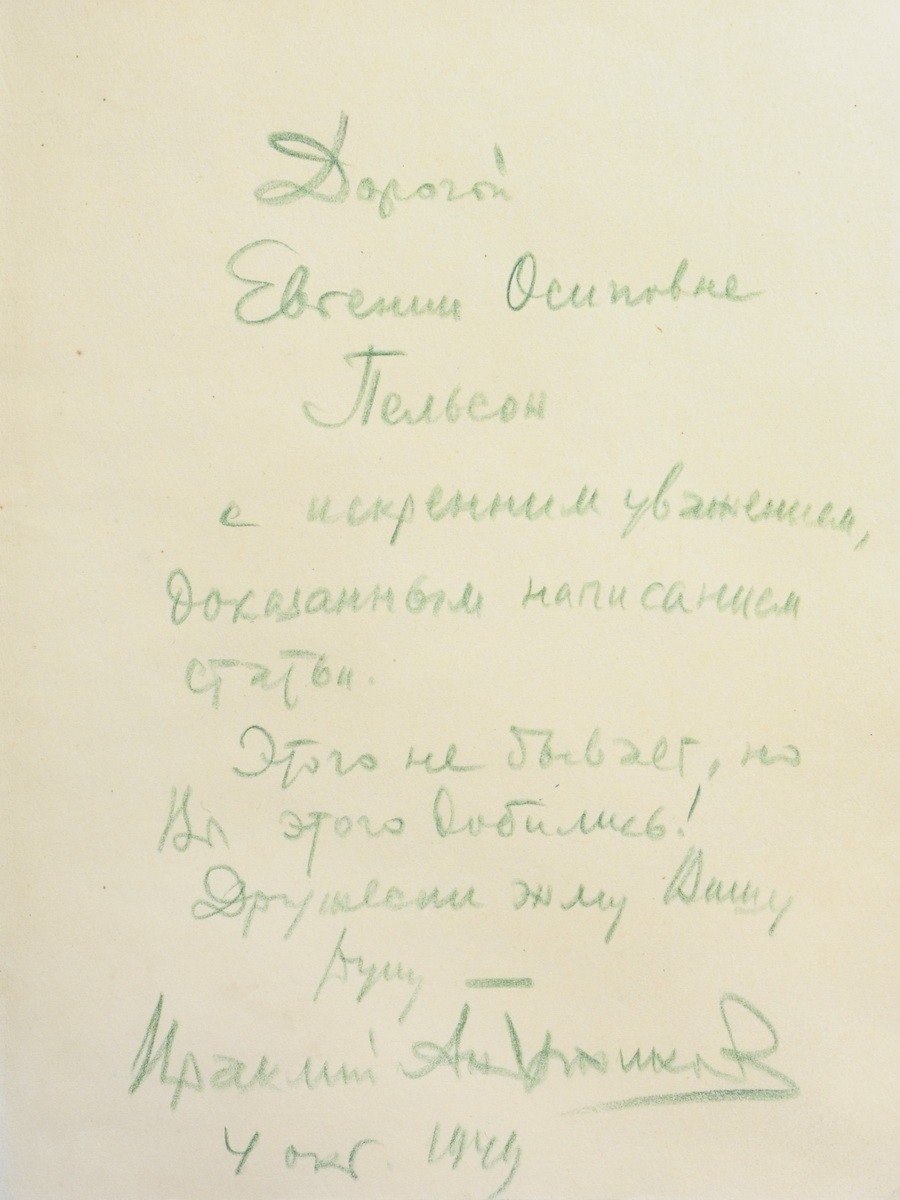 Дорогой
Евгении Осиповне
Пельсон
с искренним уважением,
доказанным написанием
статьи.
Этого не бывает, но
Вы этого добились!
Дружески жму Вашу
руку —
Ираклий Андроников
4 окт. 1949